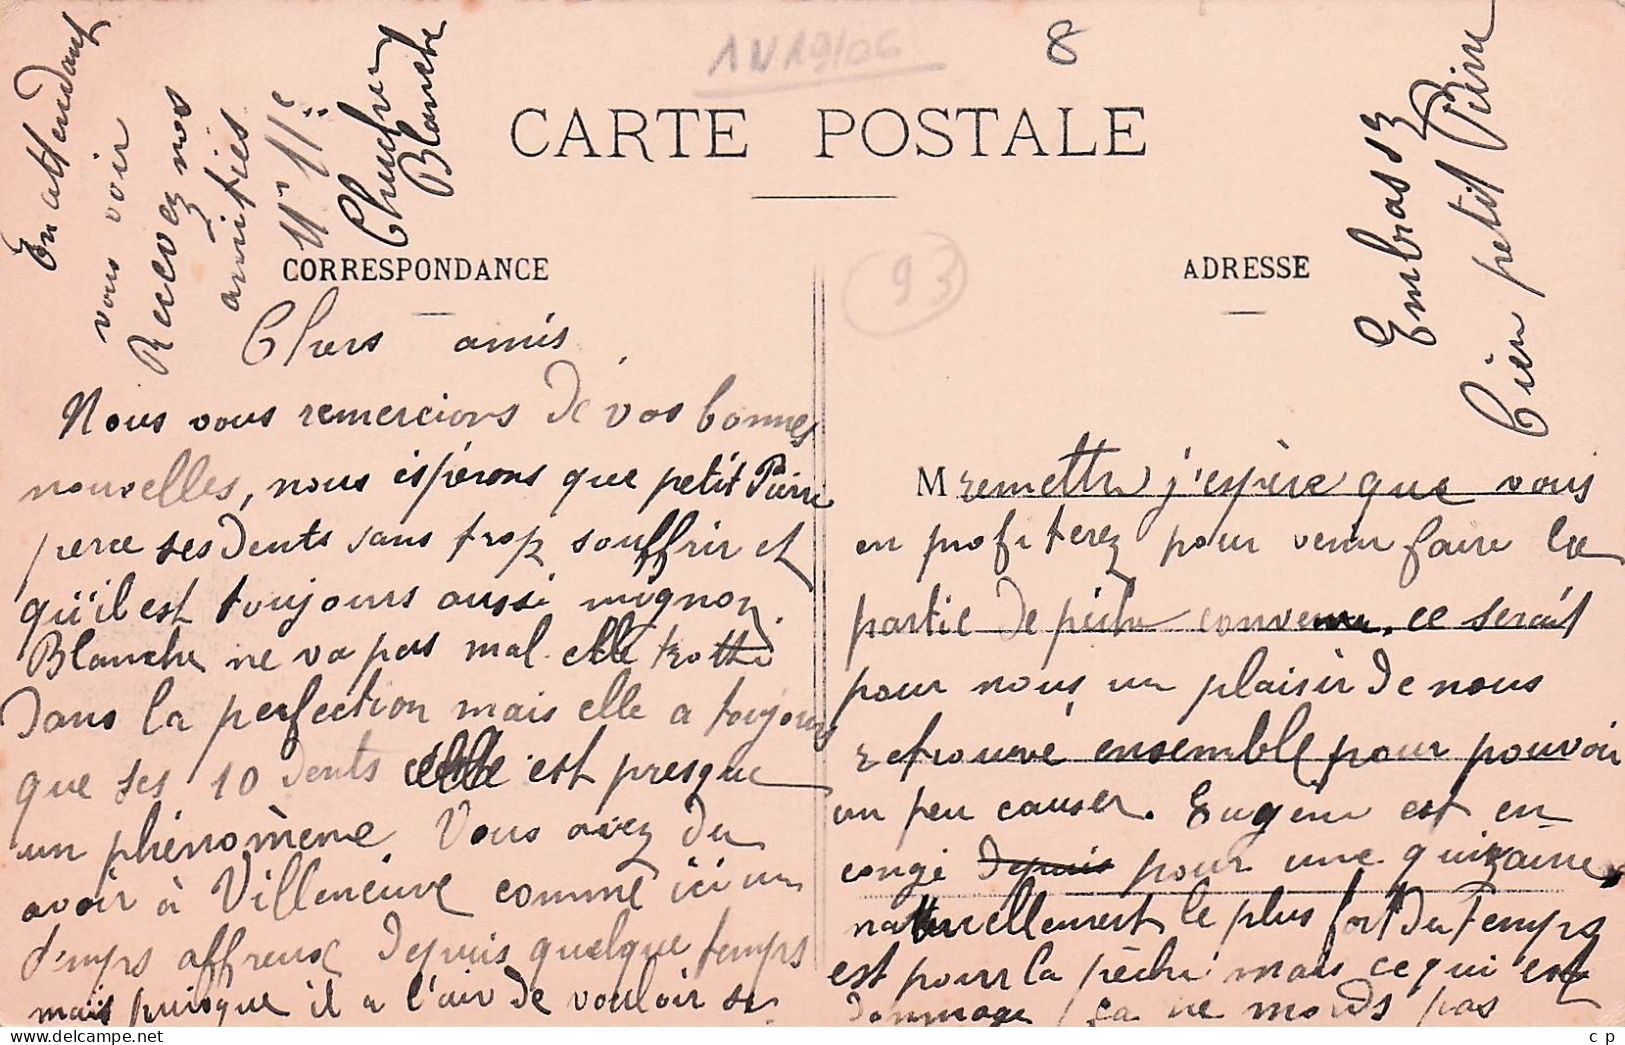 1 N 19/06
8
CARTE POSTALE
CORRESPONDANCE
ADRESSE
93
Chers amis
Nous vous remercions de vos bonnes
nouvelles, nous éspérons que petit Pierre
perce ses dents sans trop souffrir et
qu'il est toujours aussi mignon.
Blanche ne va pas mal elle trotte
dans la perfection mais elle a toujours
que ses 10 dents elle est presque
un phénomène. Vous avez du
avoir à Villeneuve comme ici un
temps affreux depuis quelque temps
mais puisque il a l'air de vouloir se
M remettre j'espère que vous
en profiterez pour venir faire la
partie de pêche convenue. ce serait
pour nous un plaisir de nous
retrouvé ensemble pour pouvoir
un peu causer. Eugène est en
congé depuis pour une quinzaine
naturellement le plus fort du temps
est pour la pêche mais ce qui est
dommage ça ne mords pas
En attendant
vous voir
Recevez nos
amitiés
Blanche
Embrassez
bien petit Pierre
c p